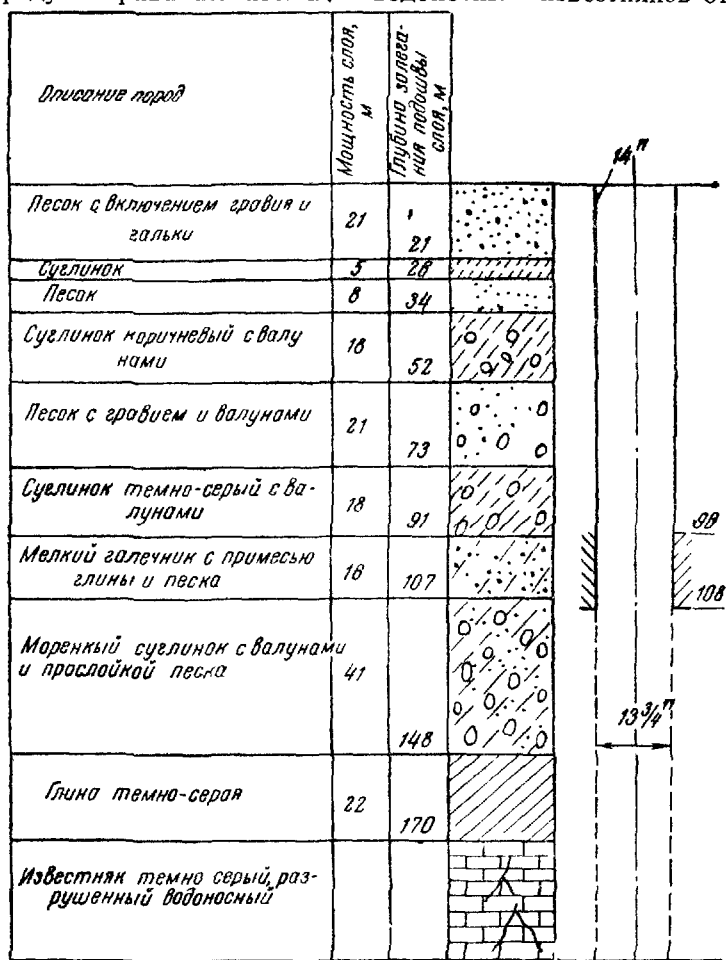 Описание пород
Мощность слоя,
м
Глубина залега-
ния подошвы
слоя, м
14"
Песок с включением гравия и
гальки
21
21
Суглинок
5
26
Песок
8
34
Суглинок коричневый с валу
нами
18
52
Песок с гравием и валунами
21
73
Суглинок темно-серый с ва-
лунами
18
91
98
Мелкий галечник с примесью
глины и песка
16
107
108
Моренный суглинок с валунами
и прослойкой песка
41
148
13 3/4"
Глина темно-серая
22
170
Известняк темно серый, раз-
рушенный водоносный